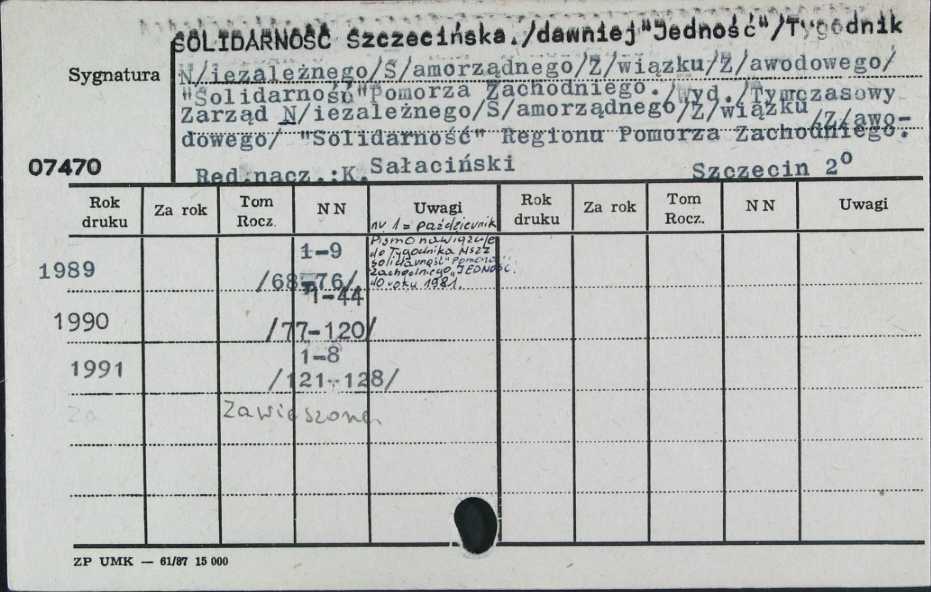 SOLIDARNOŚĆ Szczecińska./dawniej"Jedność"/Tygodnik
Sygnatura
N/iezależnego/S/amorządnego/Z/wiązku/Z/awodowego/
"Solidarność"Pomorza Zachodniego./Wyd./Tymczasowy
Zarząd N/iezależnego/S/amorządnego/Z/wiązku /Z/awo-
dowego/ "Solidarność" Regionu Pomorza Zachodniego.
07470
Red.nacz.:K.Sałaciński Szczecin 2°
Rok druku Za rok Tom Rocz. NN Uwagi Rok druku Za rok Tom Rocz. NN Uwagi
nr 1 = październik
Pismo nawiązuje
do Tygodnika NSZZ
"Solidarność" Pomorza
Zachodniego "JEDNOŚĆ"
do roku 1981.
1989 1-9
/68-76/
1990 1-44
/77-120/
1991 1-8
/121-128/
Za
Zawieszone
ZP UMK — 61/87 15 000